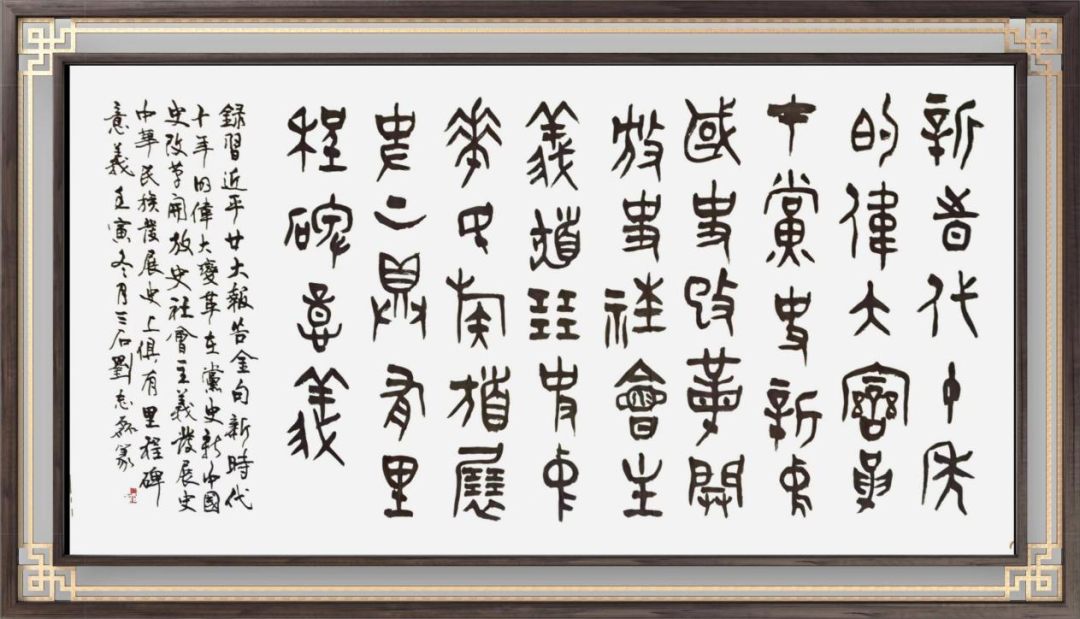 新旹代十年
的偉大變革
在黨史新中
國史改革開
放史社會主
義發展史中
華民族發展
史上具有里
程碑意義
録習近平廿大報告金句新時代
十年的偉大變革在黨史新中國
史改革開放史社會主義發展史
中華民族發展史上俱有里程碑
意義壬寅冬月三石劉志篆